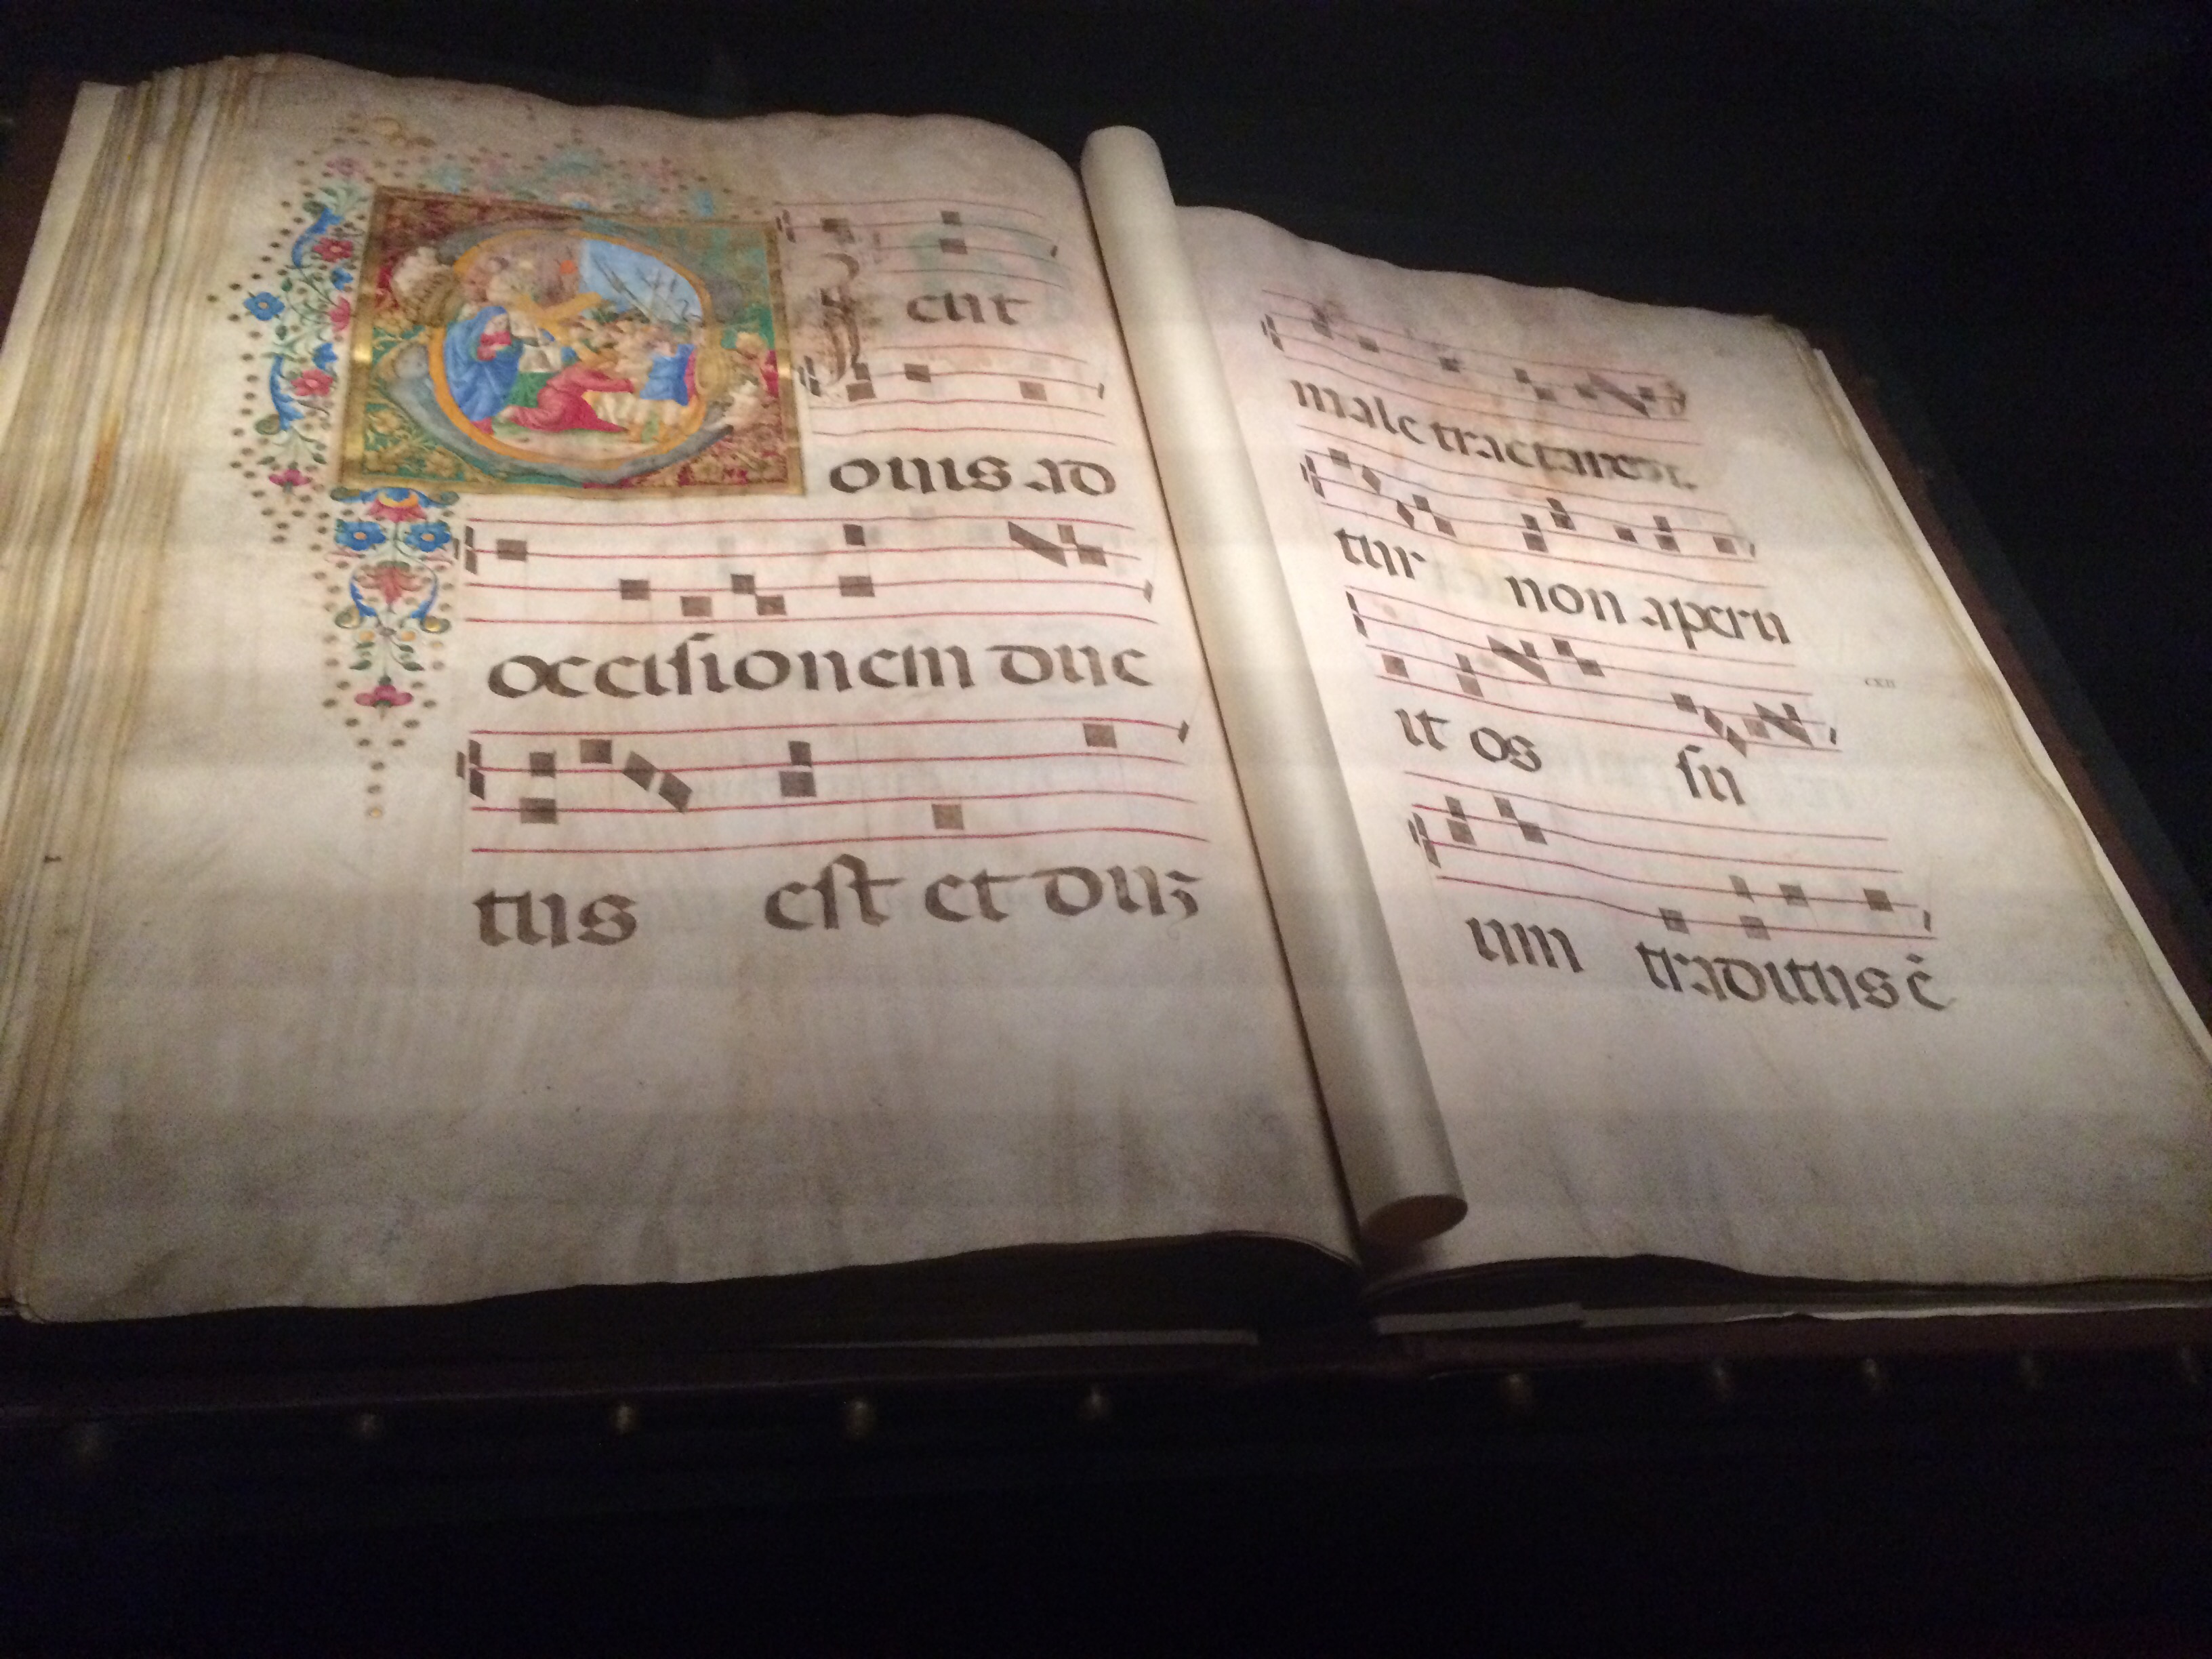 Sicut
ouis ad
occisionem duc
tus est et duʒ
male tractaret̄.
tur non aperu
it os su
um traditus ē
cxii